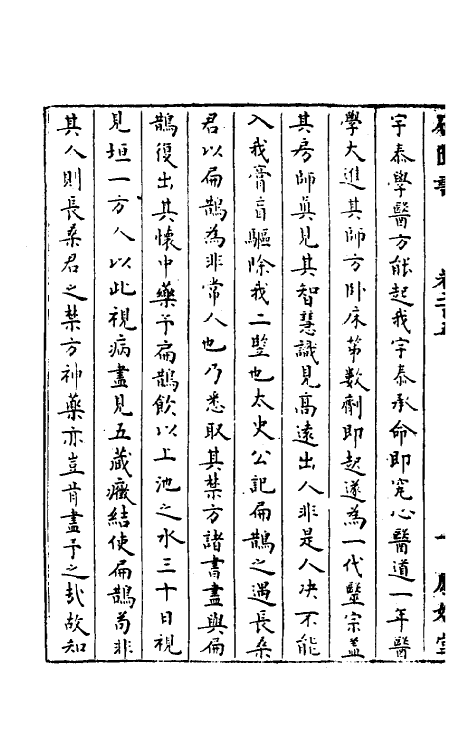 卷二十五
一
宇泰學醫方能起我宇泰承命即究心醫道一年醫
學大進其師方卧床第數劑即起遂為一代毉宗蓋
其房師眞見其智慧識見高遠出人非是人决不能
入我膏肓驅除我二豎也太史公記扁鵲之遇長桑
君以扁鵲為非常人也乃悉取其禁方諸書盡與扁
鵲復出其懷中藥予扁鵲飲以上池之水三十日視
見垣一方人以此視病盡見五藏癥結使扁鵲茍非
其人則長桑君之禁方神藥亦豈肯盡予之㢤故知